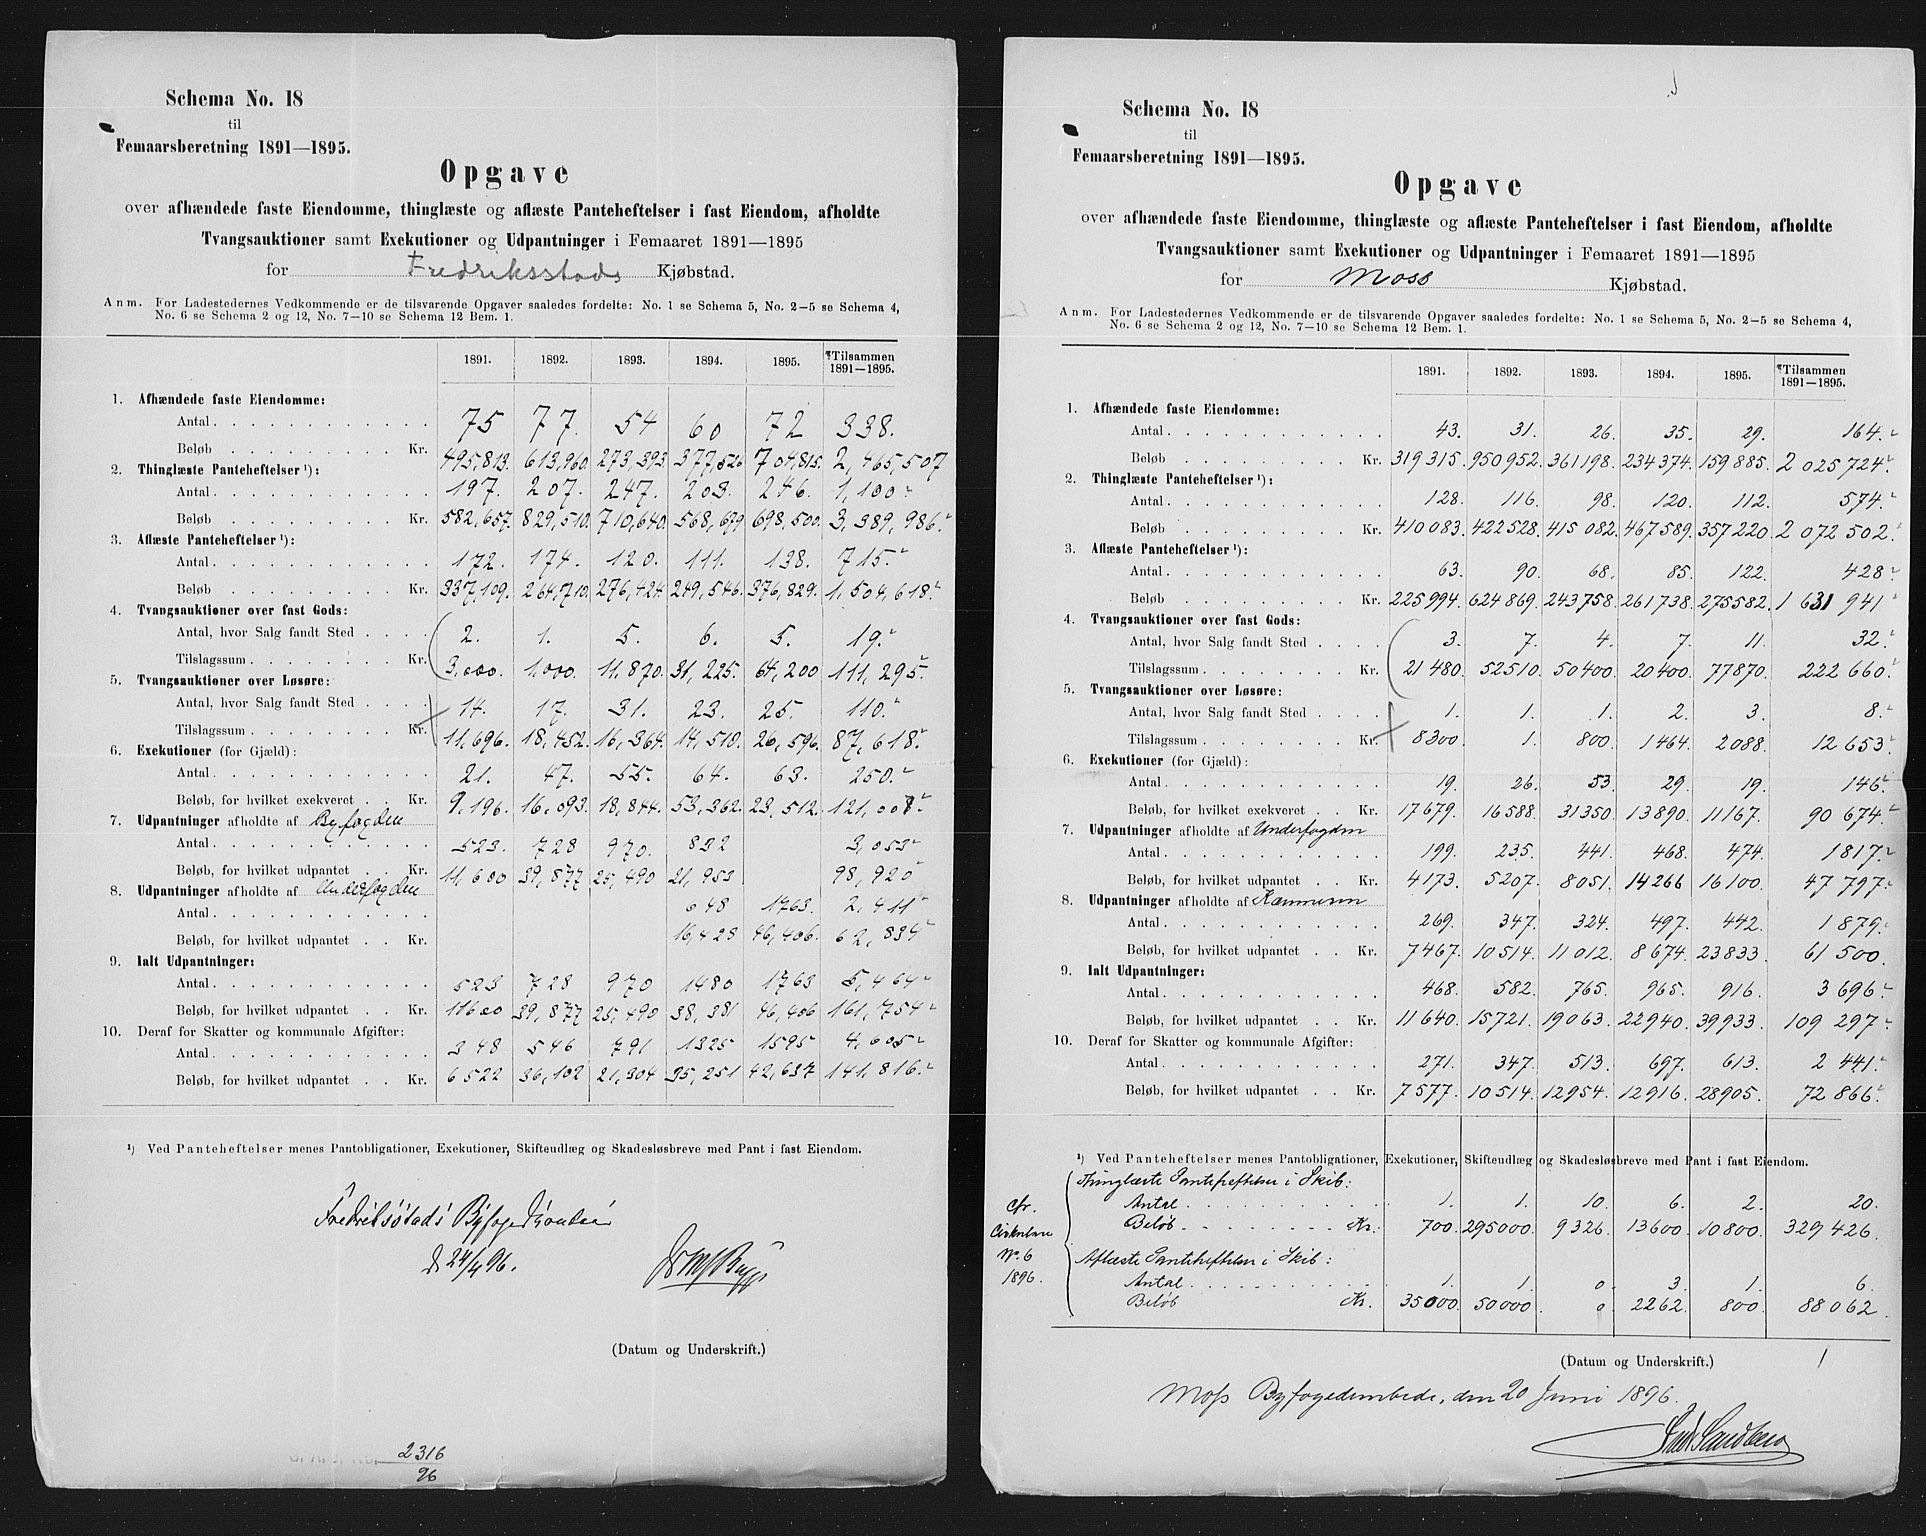 Schema No. 18
til
Femaarsberetning 1891—1895.
Opgave
over afhændede faste Eiendomme, thinglæste og aflæste Panteheftelser i fast Eiendom, afholdte
Tvangsauktioner samt Exekutioner og Udpantninger i Femaaret 1891—1895
for Fredriksstads Kjøbstad.
Anm. For Ladestedernes Vedkommende er de tilsvarende Opgaver saaledes fordelte: No. 1 se Schema 5, No. 2—5 se Schema 4,
No. 6 se Schema 2 og 12, No. 7—10 se Schema 12 Bem. 1.
1891. 1892. 1893. 1894. 1895. Tilsammen 1891—1895.
1. Afhændede faste Eiendomme:
Antal 75 77. 54 60 72 338.
Beløb Kr. 495,813. 613,960. 273,393. 377,526 704,815. 2,465,507
2. Thinglæste Panteheftelser ¹):
Antal 197. 207. 247. 203. 246. 1,100.
Beløb Kr. 582,657. 829,510. 710,640. 568,679 698,500. 3,389,986.
3. Aflæste Panteheftelser ¹):
Antal 172. 174. 120. 111. 138. 715.
Beløb Kr. 337,109. 264,710. 276,424. 249,546. 376,829. 1,504,618.
4. Tvangsauktioner over fast Gods:
Antal, hvor Salg fandt Sted 2. 1. 5. 6. 5. 19.
Tilslagssum Kr. 3,000. 1,000. 11,870. 31,225. 64,200 111,295.
5. Tvangsauktioner over Løsøre:
Antal, hvor Salg fandt Sted 14. 17. 31. 23. 25. 110.
Tilslagssum Kr. 11,696. 18,452. 16,364. 14,510. 26,596. 87,618.
6. Exekutioner (for Gjæld):
Antal 21. 47. 55. 64. 63. 250.
Beløb, for hvilket exekveret Kr. 9,196. 16,093. 18,844. 53,362. 23,512. 121,007.
7. Udpantninger afholdte af Byfogden
Antal 523. 728 970. 832 3,053
Beløb, for hvilket udpantet Kr. 11,600 39,877 25,490 21,953 98,920
8. Udpantninger afholdte af Underfogden
Antal 648 1763. 2,411
Beløb, for hvilket udpantet Kr. 16,428 46,406. 62,834
9. Ialt Udpantninger:
Antal 523 728 970 1480 1763 5,464
Beløb, for hvilket udpantet Kr. 11600 39,877 25,490 38,381 46,406 161,754
10. Deraf for Skatter og kommunale Afgifter:
Antal 348 546 791 1325 1595 4,605
Beløb, for hvilket udpantet Kr. 6522 36,102 21,304 35,251 42,637 141,816.
¹) Ved Panteheftelser menes Pantobligationer, Exekutioner, Skifteudlæg og Skadesløsbreve med Pant i fast Eiendom.
d 24/4 96.
(Datum og Underskrift.)
2316
96
Schema No. 18
til
Femaarsberetning 1891—1895.
Opgave
over afhændede faste Eiendomme, thinglæste og aflæste Panteheftelser i fast Eiendom, afholdte
Tvangsauktioner samt Exekutioner og Udpantninger i Femaaret 1891—1895
for Moss Kjøbstad.
Anm. For Ladestedernes Vedkommende er de tilsvarende Opgaver saaledes fordelte: No. 1 se Schema 5, No. 2—5 se Schema 4,
No. 6 se Schema 2 og 12, No. 7—10 se Schema 12 Bem. 1.
1891. 1892. 1893. 1894. 1895. Tilsammen 1891—1895.
1. Afhændede faste Eiendomme:
Antal 43. 31. 26. 35. 29. 164.
Beløb Kr. 319315. 950952. 361198. 234374. 159885. 2 025724.
2. Thinglæste Panteheftelser ¹):
Antal 128. 116. 98. 120. 112. 574.
Beløb Kr. 410083. 422528. 415082. 467589. 357220. 2 072502.
3. Aflæste Panteheftelser ¹):
Antal 63. 90. 68. 85. 122. 428.
Beløb Kr. 225994. 624869. 243758. 261738. 275582. 1 631941
4. Tvangsauktioner over fast Gods:
Antal, hvor Salg fandt Sted 3. 7. 4. 7. 11. 32.
Tilslagssum Kr. 21480. 52510. 50400. 20400. 77870. 222660.
5. Tvangsauktioner over Løsøre:
Antal, hvor Salg fandt Sted 1. 1. 1. 2. 3. 8.
Tilslagssum Kr. 8300. 1. 800. 1464. 2088. 12653.
6. Exekutioner (for Gjæld):
Antal 19. 26. 53. 29. 19. 146.
Beløb, for hvilket exekveret Kr. 17679. 16588. 31350. 13890. 11167. 90674.
7. Udpantninger afholdte af Underfogden
Antal 199. 235. 441. 468. 474. 1817.
Beløb, for hvilket udpantet Kr. 4173. 5207. 8051. 14266 16100. 47797.
8. Udpantninger afholdte af Kæmneren
Antal 269. 347. 324. 497. 442. 1879.
Beløb, for hvilket udpantet Kr. 7467. 10514. 11012. 8674. 23833. 61500.
9. Ialt Udpantninger:
Antal 468. 582. 765. 965. 916. 3696.
Beløb, for hvilket udpantet Kr. 11640. 15721. 19063. 22940. 39933. 109297.
10. Deraf for Skatter og kommunale Afgifter:
Antal 271. 347. 513. 697. 613. 2441.
Beløb, for hvilket udpantet Kr. 7577. 10514. 12954. 12916. 28905. 72866.
¹) Ved Panteheftelser menes Pantobligationer, Exekutioner, Skifteudlæg og Skadesløsbreve med Pant i fast Eiendom.
cfr. Cirkulære No. 6 1896.
Thinglæste Panteheftelser i Skib:
Antal 1. 1. 10. 6. 2. 20.
Beløb Kr. 700. 295000. 9326. 13600. 10800. 329426.
Aflæste Panteheftelser i Skib:
Antal 1. 1. 0 3. 1. 6.
Beløb Kr. 35000. 50000. 0 2262. 800. 88062.
(Datum og Underskrift.)
Moss Byfogedembede, den 20 Juni 1896.